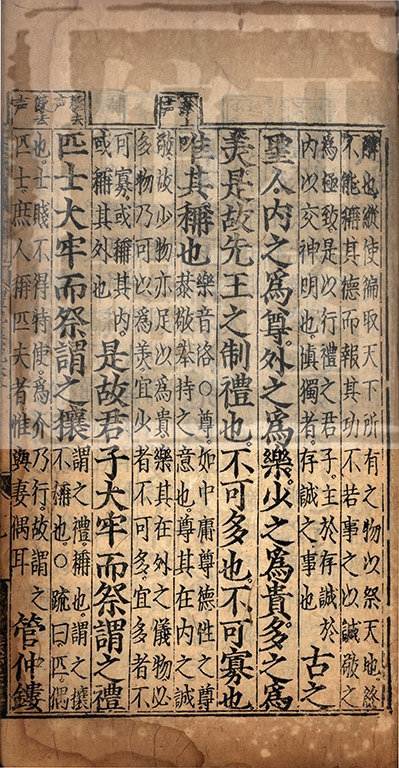 醇也縱使徧取天下所有之物以祭天地終
不能稱其德而報其功不若事之以誠敬之
為極致是以行禮之君子。主於存誠於
內以交神明也。慎獨者。存誠之事也
古之
聖人內之為尊。外之為樂。少之為貴。多之為
美。是故先王之制禮也。不可多也。不可寡也
唯其稱也
樂音洛○尊。如中庸尊德性之尊
恭敬奉持之意也。尊其在內之誠
敬。故少物亦足以為貴。樂其在外之儀物必
多物乃可以為美。宜少者不可多。宜多者不
可寡。或稱其內。
或稱其外也
是故君子大牢而祭謂之禮
匹士大牢而祭謂之攘
謂之禮稱也謂之攘
不稱也。○疏曰。匹。偶
也。士賤不得特使。為介乃行。故謂之
匹士。庶人稱匹夫者。惟與妻偶耳
管仲鏤